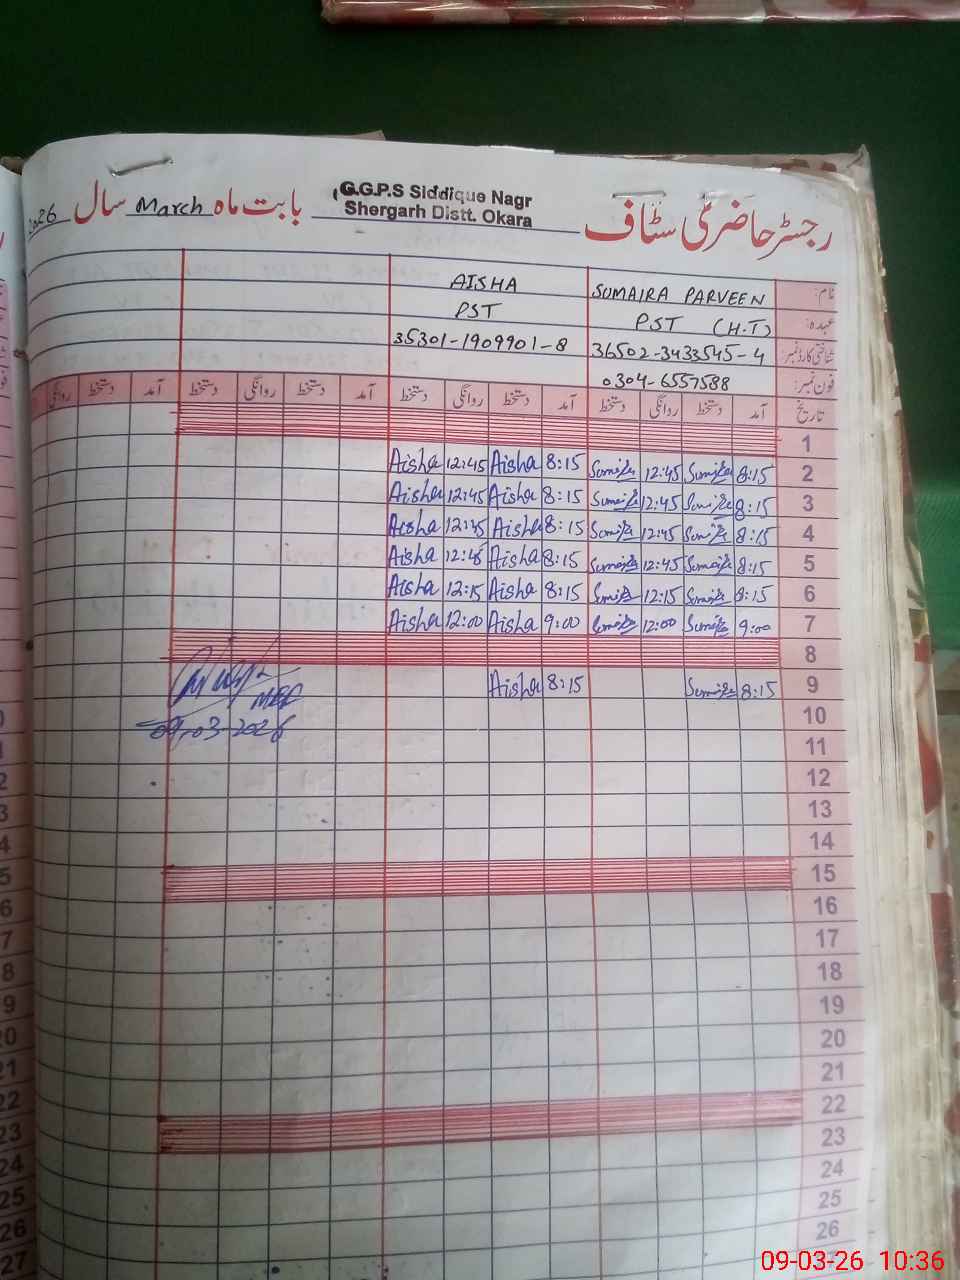 رجسٹر حاضری سٹاف G.G.P.S Siddique Nagr Shergarh Distt. Okara بابت ماہ March سال 2026
نام: SUMAIRA PARVEEN AISHA
عہدہ: PST (H.T) PST
شناختی کارڈ نمبر: 36502-3433545-4 35301-1909901-8
فون نمبر: 0304-6557588
تاریخ آمد دستخط روانگی دستخط آمد دستخط روانگی دستخط آمد دستخط روانگی دستخط آمد دستخط روانگی
1
2 8:15 Sumaira 12:45 Sumaira 8:15 Aisha 12:45 Aisha
3 8:15 Sumaira 12:45 Sumaira 8:15 Aisha 12:45 Aisha
4 8:15 Sumaira 12:45 Sumaira 8:15 Aisha 12:45 Aisha
5 8:15 Sumaira 12:45 Sumaira 8:15 Aisha 12:45 Aisha
6 8:15 Sumaira 12:15 Sumaira 8:15 Aisha 12:15 Aisha
7 9:00 Sumaira 12:00 Sumaira 9:00 Aisha 12:00 Aisha
8
9 8:15 Sumaira 8:15 Aisha
10 09-03-2026
11
12
13
14
15
16
17
18
19
20
21
22
23
24
25
26
09-03-26 10:36